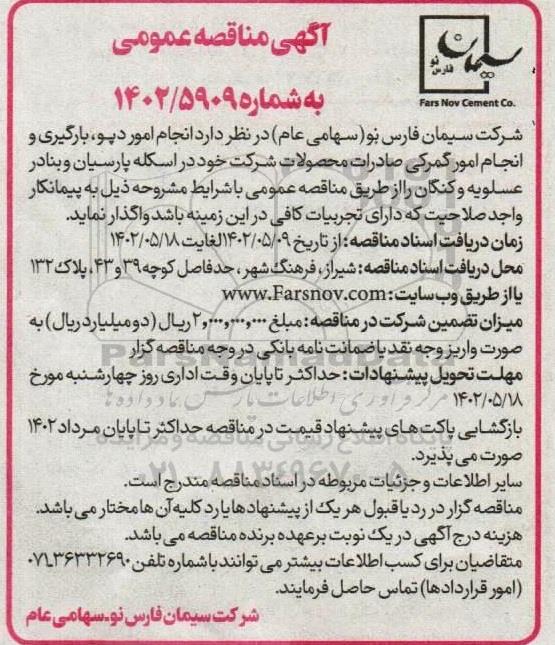 آگهی مناقصه عمومی
به شماره ۱۴۰۲/۵۹۰۹
سیمان
فارس نو
Fars Nov Cement Co.
شرکت سیمان فارس نو (سهامی عام) در نظر دارد انجام امور دپو، بارگیری و
انجام امور گمرکی صادرات محصولات شرکت خود در اسکله پارسیان و بنادر
عسلویه و کنگان را از طریق مناقصه عمومی با شرایط مشروحه ذیل به پیمانکار
واجد صلاحیت که دارای تجربیات کافی در این زمینه باشد واگذار نماید.
زمان دریافت اسناد مناقصه: از تاریخ ۱۴۰۲/۰۵/۰۹ لغایت ۱۴۰۲/۰۵/۱۸
محل دریافت اسناد مناقصه: شیراز، فرهنگ شهر، حدفاصل کوچه ۳۹ و ۴۳، پلاک ۱۳۲
یا از طریق وب سایت: www.Farsnov.com
میزان تضمین شرکت در مناقصه: مبلغ ۲,۰۰۰,۰۰۰,۰۰۰ ریال (دو میلیارد ریال) به
صورت واریز وجه نقد یا ضمانت نامه بانکی در وجه مناقصه گزار
مهلت تحویل پیشنهادات: حداکثر تا پایان وقت اداری روز چهارشنبه مورخ
۱۴۰۲/۰۵/۱۸
بازگشایی پاکت های پیشنهاد قیمت در مناقصه حداکثر تا پایان مرداد ۱۴۰۲
صورت می پذیرد.
سایر اطلاعات و جزئیات مربوطه در اسناد مناقصه مندرج است.
مناقصه گزار در رد یا قبول هر یک از پیشنهادها یا رد کلیه آن ها مختار می باشد.
هزینه درج آگهی در یک نوبت بر عهده برنده مناقصه می باشد.
متقاضیان برای کسب اطلاعات بیشتر می توانند با شماره تلفن ۰۷۱-۳۶۳۳۲۶۹۰
(امور قراردادها) تماس حاصل فرمایند.
شرکت سیمان فارس نو-سهامی عام
ParsNamadData
مرکز فرآوری اطلاعات پارس نماد داده ها
پایگاه اطلاع رسانی مناقصه و مزایده
۰۲۱-۸۸۳۴۹۶۷۰-۵